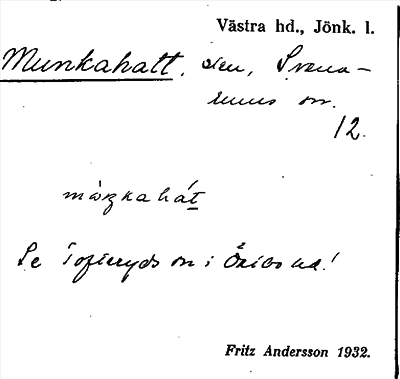 Västra hd., Jönk. l.
Munkahatt, den, Svena-
rums sn.
12.
Se Tofteryds sn i Östbo hd!
Fritz Andersson 1932.